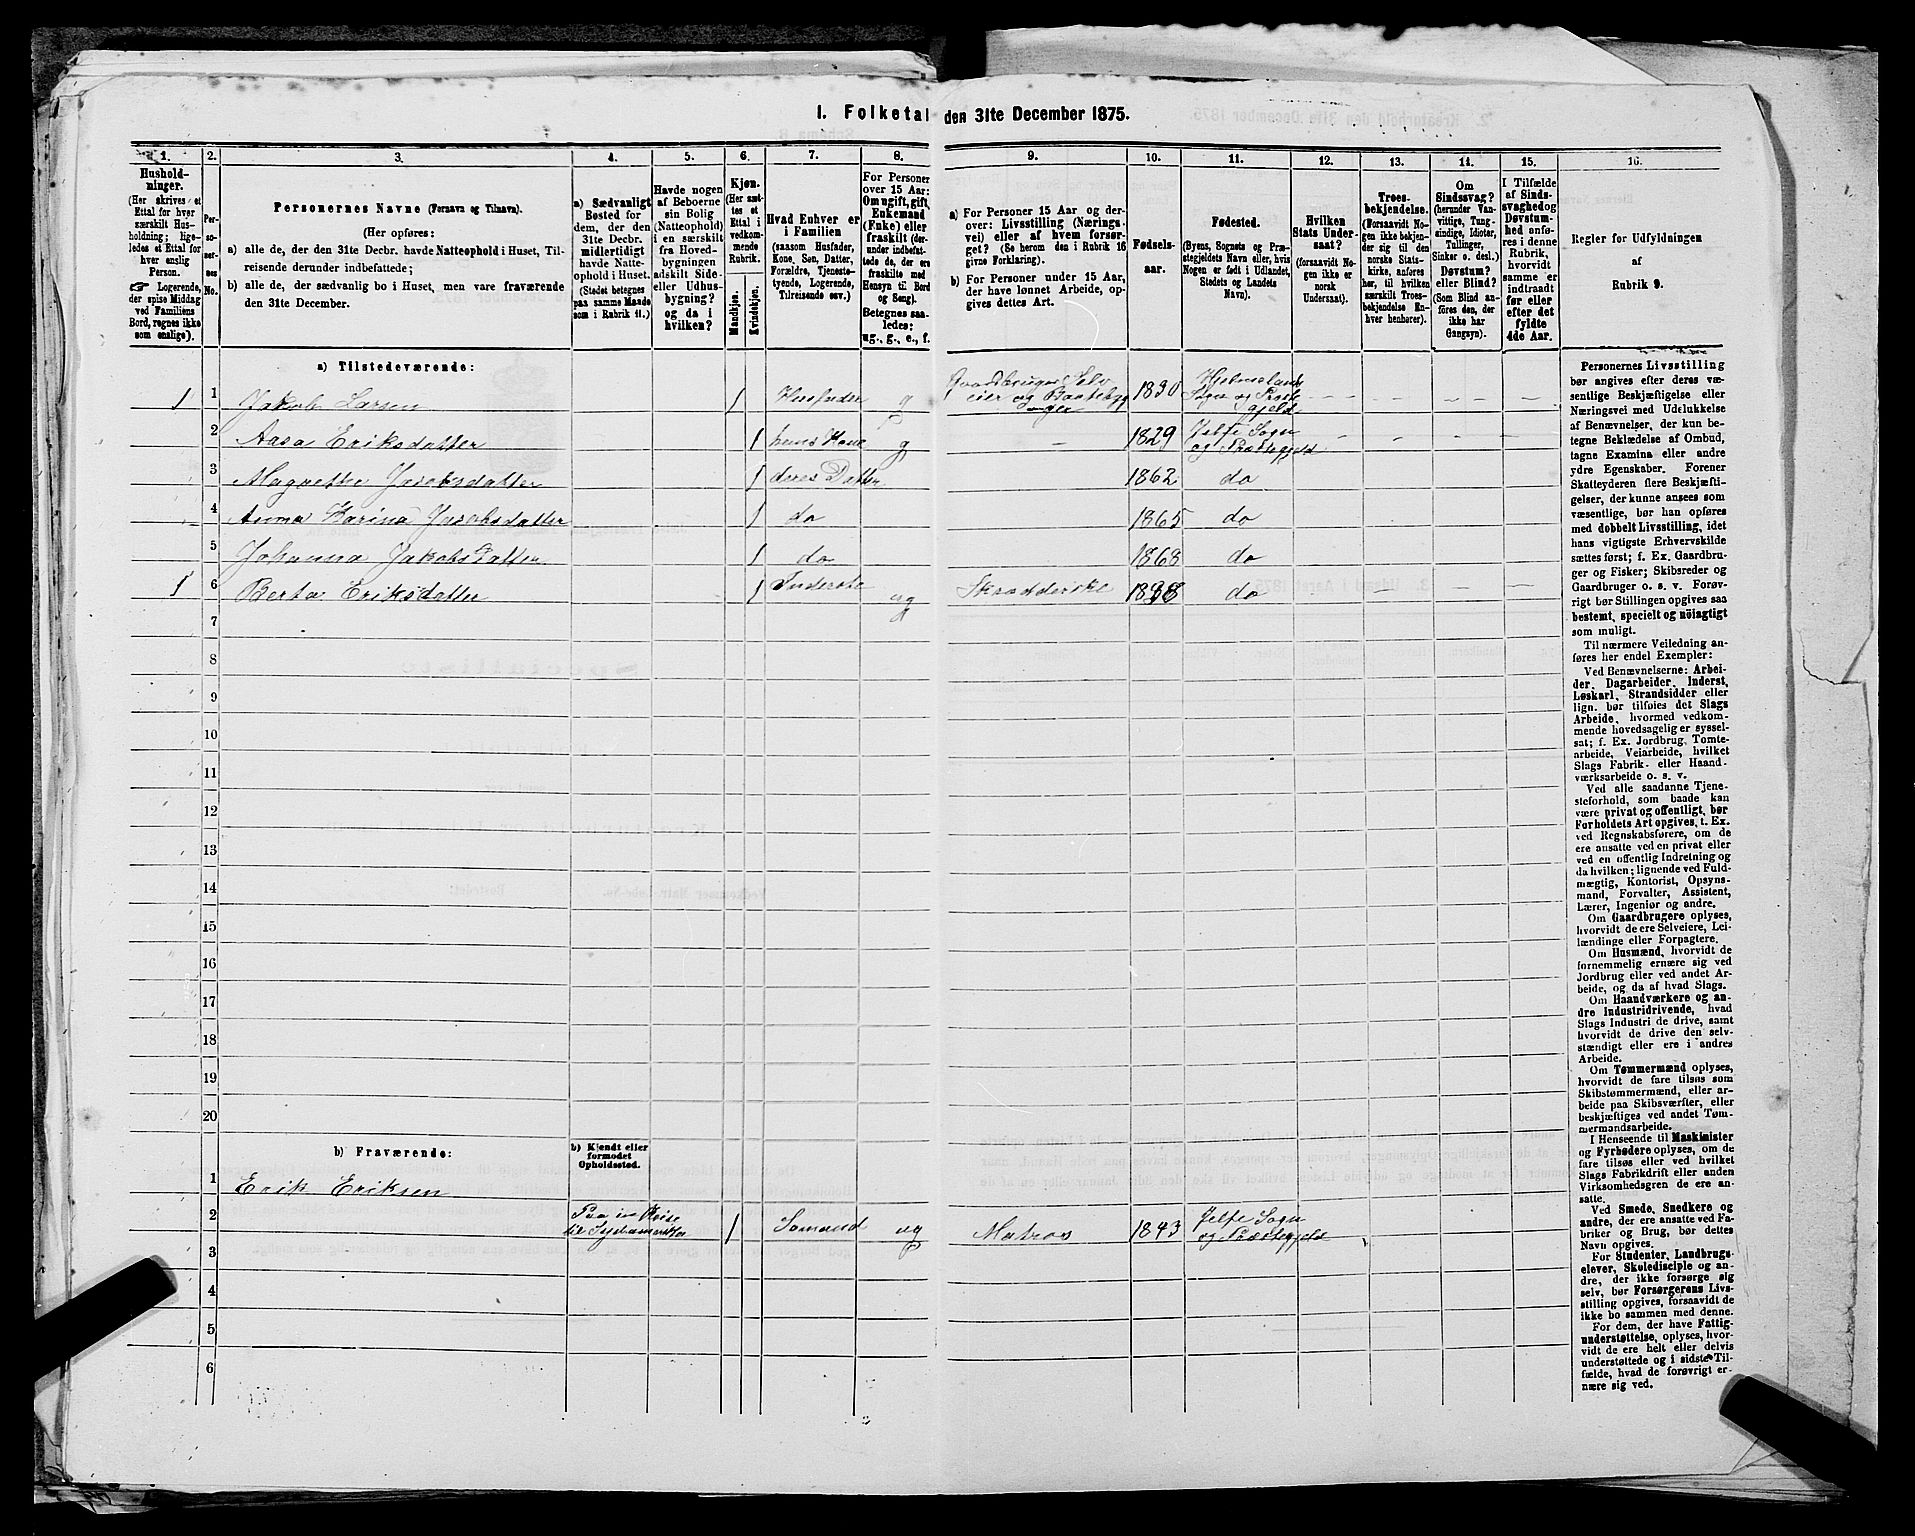 I. Folketal den 31te December 1875.
1. 2. 3. 4. 5. 6. 7. 8. 9. 10. 11. 12. 13. 14. 15. 16.
Hushold-
ninger.
(Her skrives et
Ettal for hver
særskilt Hus-
holdning; lige-
ledes et Ettal for
hver enslig
Person.
☞ Logerende,
der spise Middag
ved Familiens
Bord, regnes ikke
som enslige).
Per-
so-
ner-
nes
No.
Personernes Navne (Fornavn og Tilnavn).
(Her opføres:
a) alle de, der den 31te Decbr. havde Natteophold i Huset, Til-
reisende derunder indbefattede;
b) alle de, der sædvanlig bo i Huset, men vare fraværende
den 31te December.
a) Sædvanligt
Bosted for
dem, der den
31te Decbr.
midlertidigt
havde Natte-
ophold i Huset.
(Stedet betegnes
paa samme Maade
som i Rubrik 11.)
Havde nogen
af Beboerne
sin Bolig
(Natteophold)
i en særskilt
fra Hoved-
bygningen
adskilt Side-
eller Udhus-
bygning?
og da i
hvilken?
Kjøn.
(Her sæt-
tes et
Ettal i
vedkom-
mende
Rubrik.
Mandkjøn.
Kvindekjøn.
Hvad Enhver er
i Familien
(saasom Husfader,
Kone, Søn, Datter,
Forældre, Tjeneste-
tyende, Logerende,
Tilreisende osv.)
For Personer
over 15 Aar:
Om ugift, gift,
Enkemand
(Enke) eller
fraskilt (der-
under indbefat-
tede de, der ere
fraskilte med
Hensyn til Bord
og Seng).
Betegnes saa-
ledes:
ug., g., e., f.
a) For Personer 15 Aar og der-
over: Livsstilling (Nærings-
vei) eller af hvem forsør-
get? (Se herom den i Rubrik 16
givne Forklaring).
b) For Personer under 15 Aar,
der have lønnet Arbeide, op-
gives dettes Art.
Fødsels-
aar.
Fødested.
(Byens, Sognets og Præ-
stegjeldets Navn eller, hvis
Nogen er født i Udlandet,
Stedets og Landets
Navn).
Hvilken
Stats Under-
saat?
(forsaavidt No-
gen ikke er
norsk
Undersaat).
Troes-
bekjendelse.
(Forsaavidt No-
gen ikke bekjen-
der sig til den
norske Stats-
kirke, anføres
her, til hvilken
særskilt Troes-
bekjendelse En-
hver henhører).
Om
Sindssvag?
(herunder Van-
vittige, Tung-
sindige, Idioter,
Tullinger,
Sinker o. desl.)
Døvstum?
eller Blind?
(Som Blind an-
føres den, der
ikke har
Gangsyn).
I Tilfælde
af Sinds-
svaghed og
Døvstum-
hed anfø-
res i denne
Rubrik,
hvorvidt
samme er
indtraadt
før eller
efter det
fyldte
4de Aar.
Regler for Udfyldningen
af
Rubrik 9.
a) Tilstedeværende:
1 1 Jakob Larsen 1 Husfader g Gaardbruger Selveier og Baatebygger 1830 Sogn og Præstegjeld
2 Aasa Eriksdatter 1 hans Kone g 1829 Jelse Sogn og Præstegjeld
3 Magrethe Jacobsdatter 1 deres Datter 1862 do
4 Anna Karina Jacobsdatter 1 do 1865 do
5 Johanna Jakobsdatter 1 do 1868 do
1 6 Berta Eriksdatter 1 Inderste ug Skradderske do
7
8
9
10
11
12
13
14
15
16
17
18
19
20
b) Fraværende:
b) Kjendt eller
formodet
Opholdssted.
1 Erik Eriksen
2 Paa en Reise til Sydamerika 1 Sømand ug Matros 1843 Jelse Sogn og Præstegjeld
3
4
5
6
Personernes Livsstilling
bør angives efter deres væ-
sentlige Beskjæftigelse eller
Næringsvei med Udelukkelse
af Benævnelser, der kun be-
tegne Beklædelse af Ombud,
tagne Examina eller andre
ydre Egenskaber. Forener
Skatteyderen flere Beskjæfti-
gelser, der kunne ansees som
væsentlige, bør han opføres
med dobbelt Livsstilling, idet
hans vigtigste Erhvervskilde
sættes først; f. Ex. Gaardbru-
ger og Fisker; Skibsreder og
Gaardbruger o. s. v. Forøv-
rigt bør Stillingen opgives saa
bestemt, specielt og nöiagtigt
som muligt.
Til nærmere Veiledning an-
føres her endel Exempler:
Ved Benævnelserne: Arbei-
der, Dagarbeider, Inderst,
Løskarl, Strandsidder eller
lign. bør tilføies det Slags
Arbeide, hvormed vedkom-
mende hovedsagelig er syssel-
sat; f. Ex. Jordbrug, Tomte-
arbeide, Veiarbeide, hvilket
Slags Fabrik- eller Haand-
værksarbeide o. s. v.
Ved alle saadanne Tjene-
steforhold, som baade kan
være privat og offentligt, bør
Forholdets Art opgives, t. Ex.
ved Regnskabsførere, om de
ere ansatte ved en privat eller
ved en offentlig Indretning og
da hvilken; lignende ved Fuld-
mægtig, Kontorist, Opsyns-
mand, Forvalter, Assistent,
Lærer, Ingeniør og andre.
Om Gaardbrugere oplyses,
hvorvidt de ere Selveiere, Lei-
lændinge eller Forpagtere.
Om Husmænd, hvorvidt de
fornemmelig ernære sig ved
Jordbrug eller ved andet Ar-
beide, og da af hvad Slags.
Om Haandværkere og an-
dre Industridrivende, hvad
Slags Industri de drive, samt
hvorvidt de drive den selv-
stændigt eller ere i andres
Arbeide.
Om Tømmermænd oplyses,
hvorvidt de fare tilsøs som
Skibstømmermænd, eller ar-
beide paa Skibsværfter, eller
beskjæftiges ved andet Tøm-
mermandsarbeide.
I Henseende til Maskinister
og Fyrbødere oplyses, om de
fare tilsøs eller ved hvilket
Slags Fabrikdrift eller anden
Virksomhedsgren de ere an-
satte.
Ved Smede, Snedkere og
andre, der ere ansatte ved Fa-
briker og Brug, bør dettes
Navn opgives.
For Studenter, Landbrugs-
elever, Skoledisciple og an-
dre, der ikke forsørge sig
selv, bør Forsørgerens Livs-
stilling opgives, forsaavidt de
ikke bo sammen med denne.
For dem, der have Fattig-
understøttelse, oplyses, hvor-
vidt de ere helt eller delvis
understøttede og i sidste Til-
fælde, hvad de forøvrigt er-
nære sig ved.